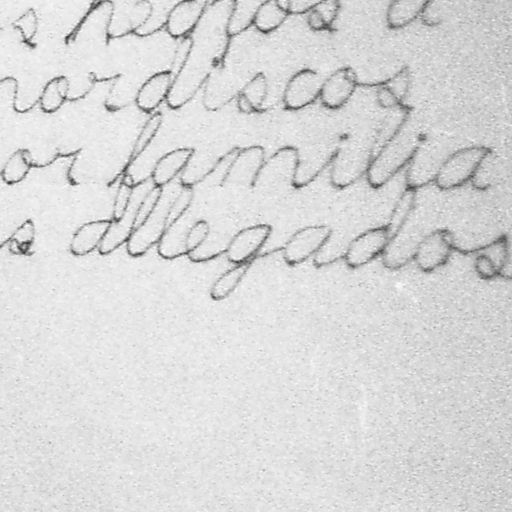 s negros a
nordiscos
or familia
s allegados